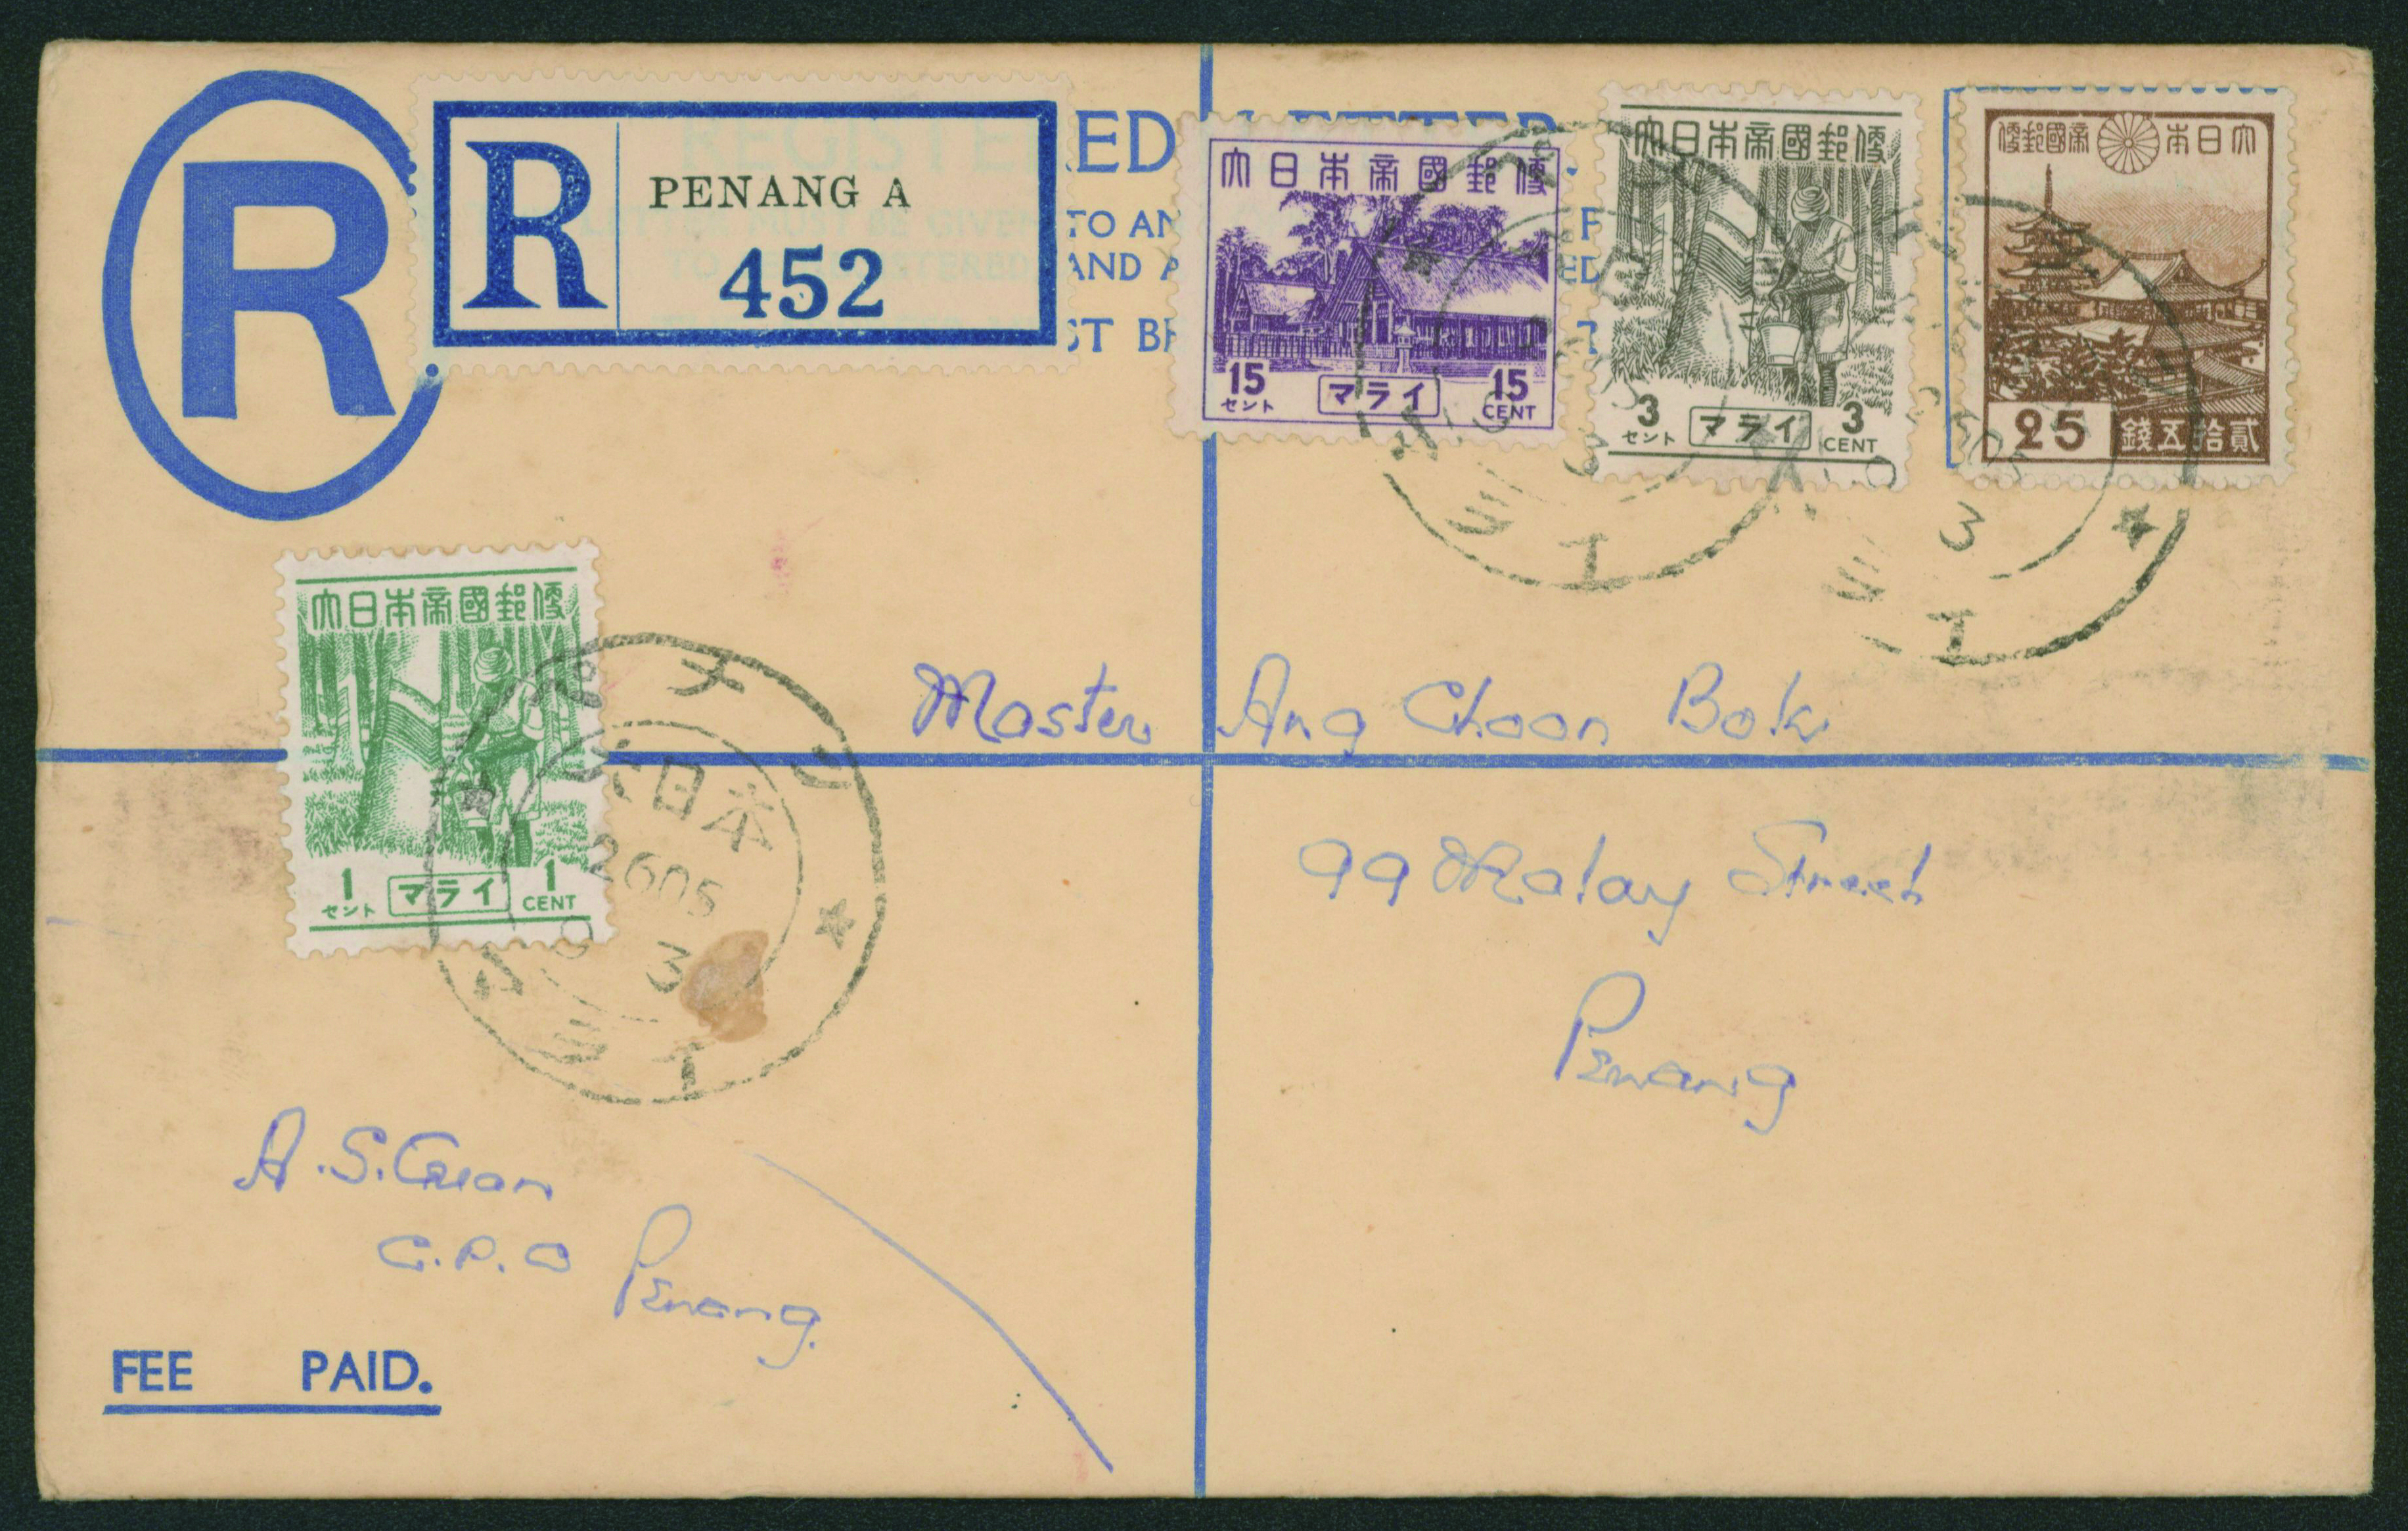 R
R
PENANG A
452
大日本帝國郵便
15
セント
マライ
15
CENT
大日本帝國郵便
3
セント
マライ
3
CENT
便郵國帝 本日大
25 錢五拾貳
大日本帝國郵便
1
セント
マライ
1
CENT
ペナン
大日本
2605
3
Master Ang Choon Bok
99 Malay Street
Penang
A.S.Guan
G.P.O
Penang.
FEE PAID.